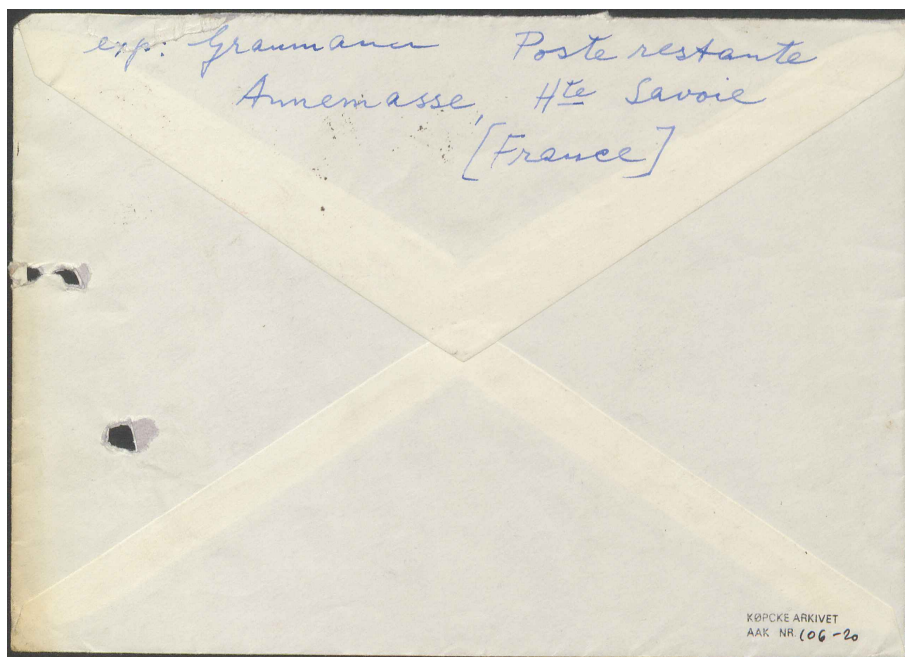 exp: Graumann Poste restante
Annemasse, Hte Savoie
[France]
KØPCKE ARKIVET
AAK NR. 106-20